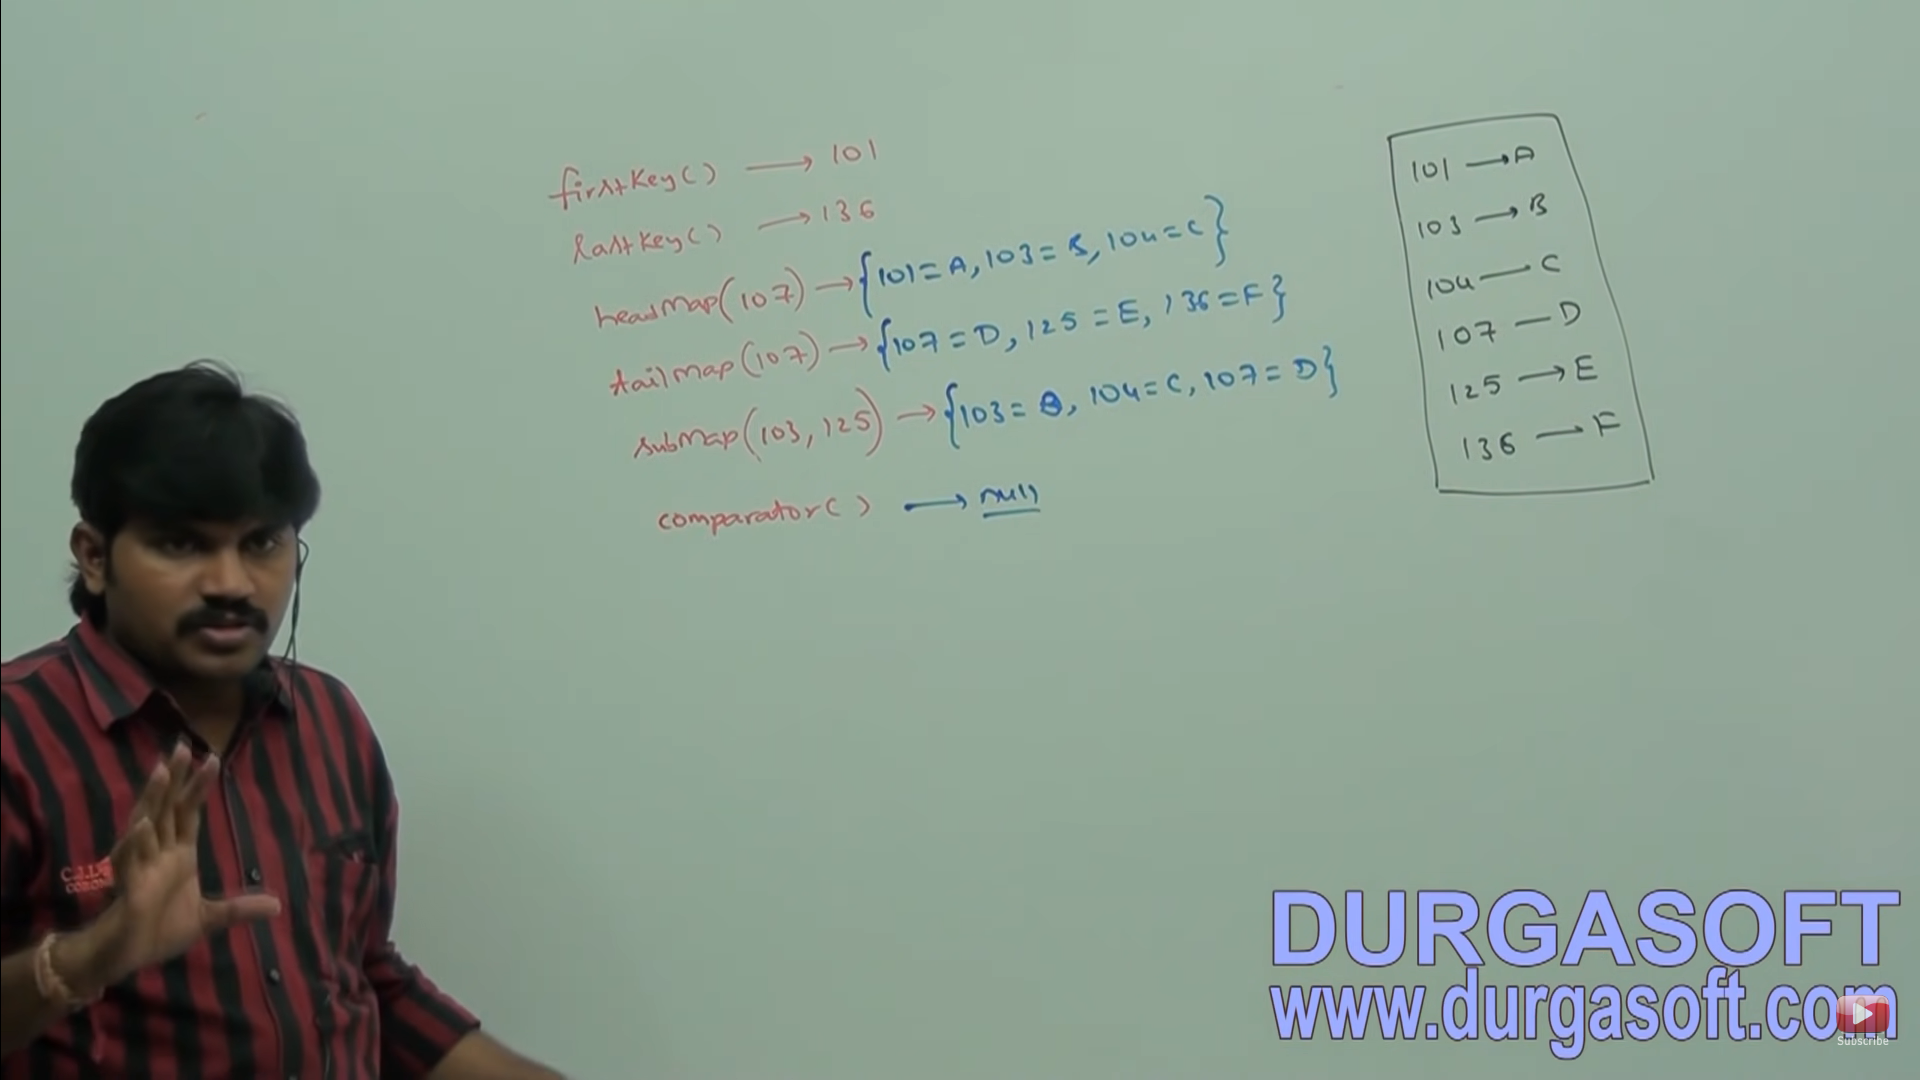 firstKey() → 101
lastKey() → 136
headMap(107) → {101=A, 103=B, 104=C}
tailMap(107) → {107=D, 125=E, 136=F}
subMap(103, 125) → {103=B, 104=C, 107=D}
comparator() → null
101 → A
103 → B
104 — C
107 — D
125 → E
136 — F
DURGASOFT
www.durgasoft.com
Subscribe